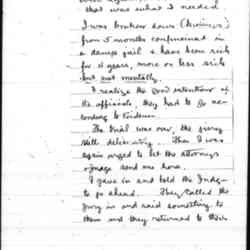 that was what I needed
I was broken down (Business)
from 5 months confinement in
a damp jail & have been sick
for 2 years, more or less sick
but not mentally.
I realize the good intentions of
the officials, they had to go ac-
cording to evidence.
The trial was over, the jury
still deliberating. Then I was
again urged to let the attorneys
& judge send me here.
I gave in and told the Judge
to go ahead. They called the
jury in and said something to
them and they returned to their